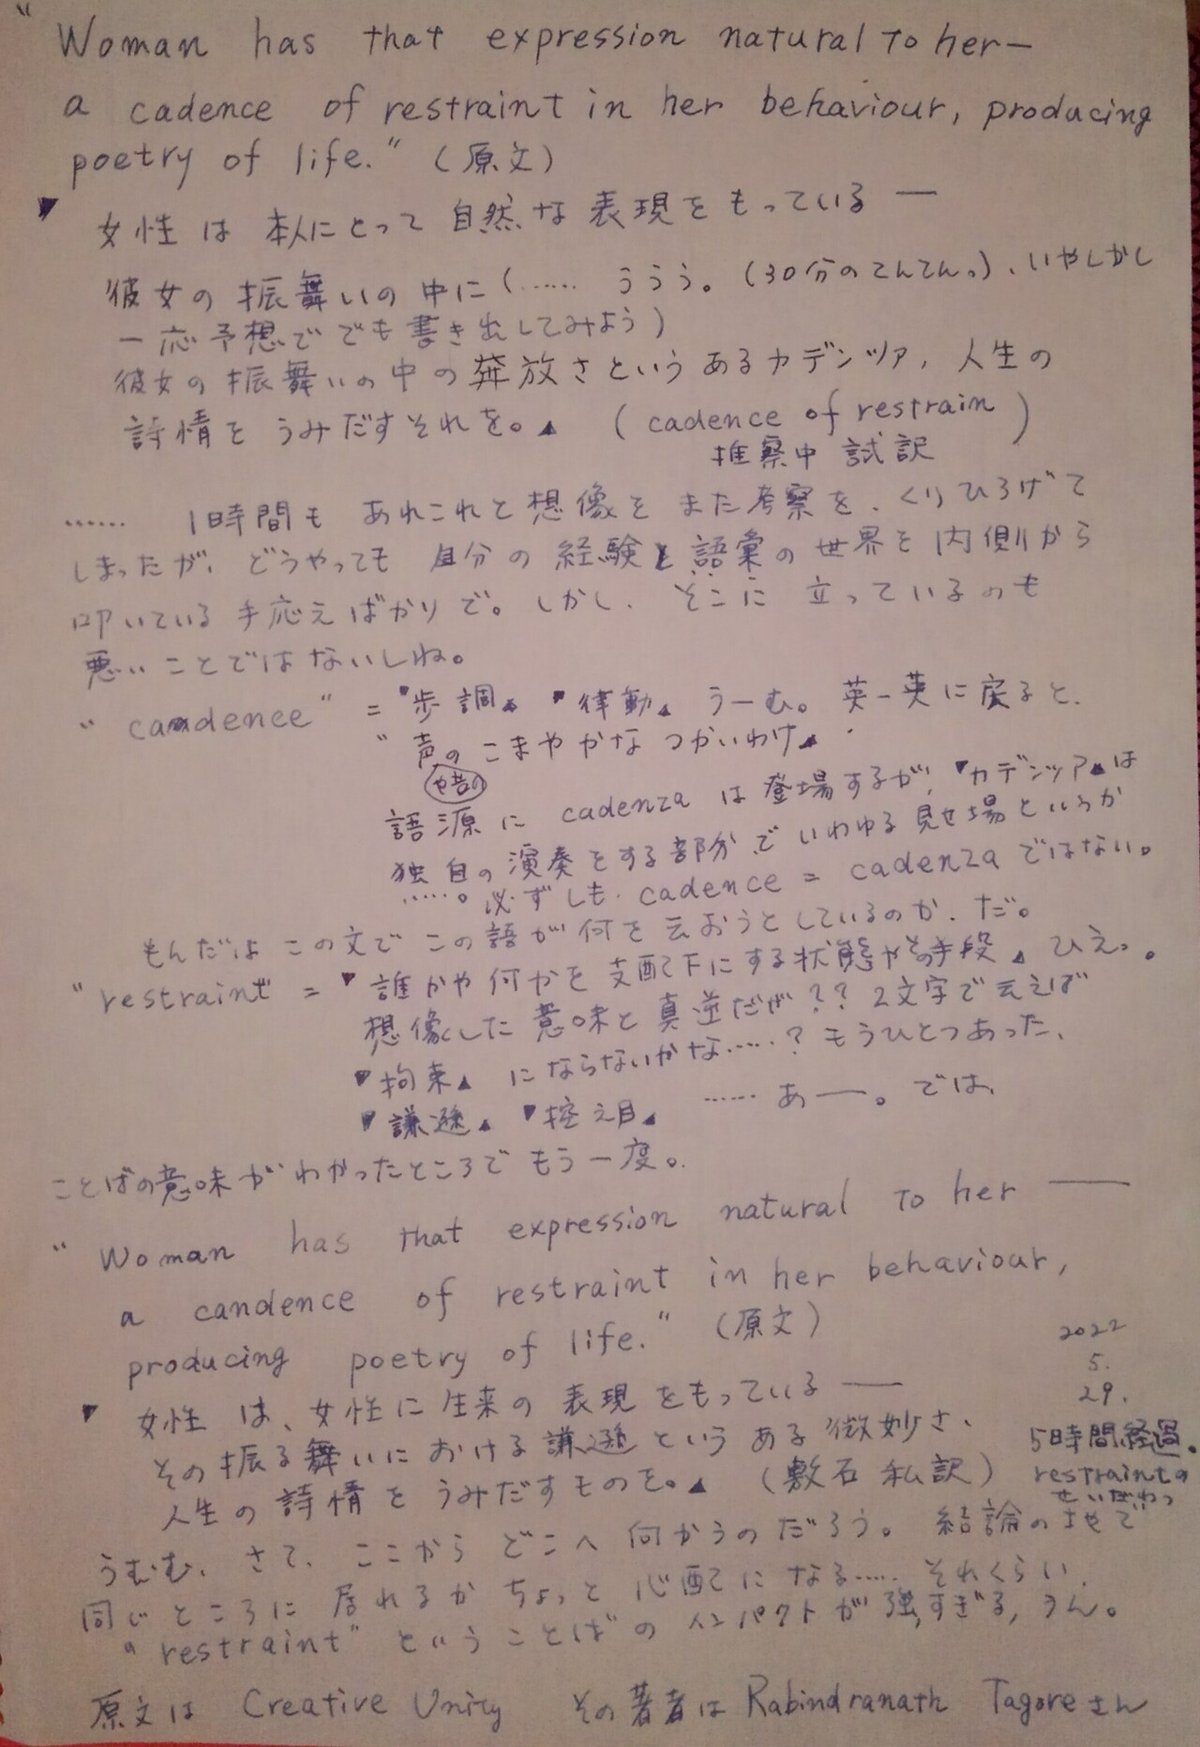 "Woman has that expression natural to her—
a cadence of restraint in her behaviour, producing
poetry of life." (原文)
▼女性は本人にとって自然な表現をもっている —
彼女の振舞いの中に(…… ううう。(30分のてんてん。)、いやしかし
一応予想ででも書き出してみよう)
彼女の振舞いの中の奔放さというあるカデンツァ, 人生の
詩情をうみだすそれを。▲ (cadence of restrain)
推察中 試訳
…… 1時間も あれこれと想像を また考察を、くりひろげて
しまったが、どうやっても 自分の経験と語彙の世界を内側から
叩いている手応えばかりで。しかし、そこに立っているのも
悪いことではないしね。
"candence" = ▼歩調▲ ▼律動▲ うーむ。英一英に戻ると、
"声のこまやかなつかいわけ▲.
や昔の
語源に cadenza は登場するが, ▼カデンツァ▲は
独自の演奏をする部分、でいわゆる見せ場というか
……。必ずしも、cadence = cadenza ではない。
もんだいは この文で この語が何を云おうとしているのか、だ。
"restraint" = ▼誰かや何かを支配下にする状態やその手段▲ ひえ。
想像した意味と真逆だが?? 2文字で云えば
▼拘束▲ にならないかな……? もうひとつあった、
▼謙遜▲ ▼控え目▲ …… あ—。では、
ことばの意味がわかったところでもう一度。
"Woman has that expression natural to her —
a candence of restraint in her behaviour,
producing poetry of life." (原文)
2022
5.
29.
▼女性は、女性に生来の表現をもっている —
その振る舞いにおける謙遜というある微妙さ、
人生の詩情をうみだすものを。▲ (敷石 私訳)
5時間経過。
restraintの
せいだわっ
うむむ、さて、ここからどこへ向かうのだろう。結論の地で
同じところに居れるかちょっと心配になる…… それくらい、
"restraint" ということばのインパクトが強すぎる, うん。
原文は Creative Unity その著者は Rabindranath Tagoreさん